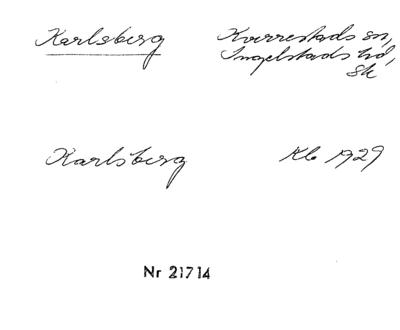 Karlsberg Kverrestads sn,
Ingelstads hd,
Sk
Karlsberg Kb 1929
Nr 21714